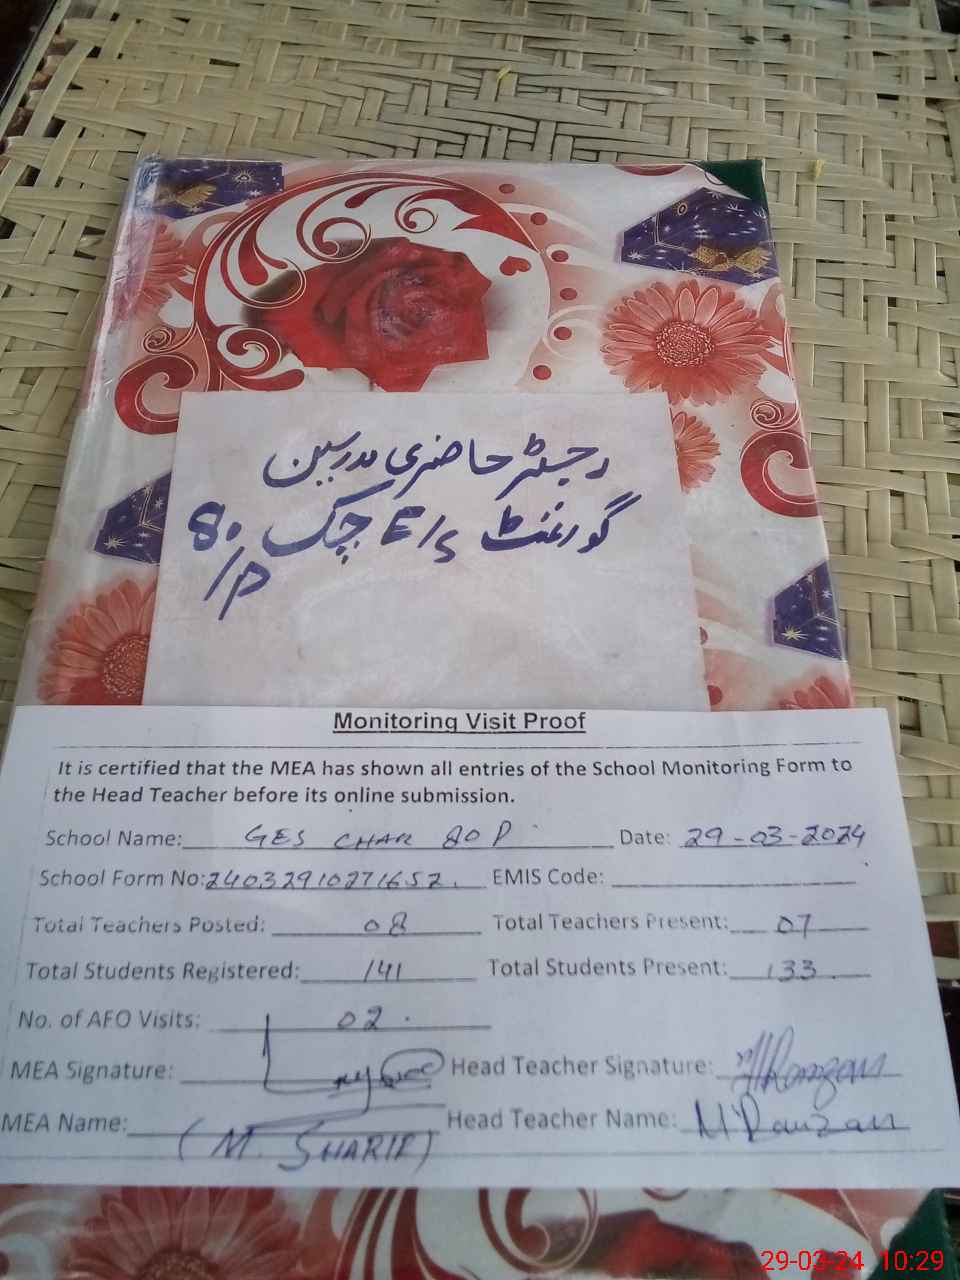 رجسٹر حاضری مدرسین
گورنمنٹ E/S چک 80/P
Monitoring Visit Proof
It is certified that the MEA has shown all entries of the School Monitoring Form to
the Head Teacher before its online submission.
School Name: GES CHAK 80 P Date: 29-03-2024
School Form No: 24032910271652. EMIS Code:
Total Teachers Posted: 08 Total Teachers Present: 07
Total Students Registered: 141 Total Students Present: 133
No. of AFO Visits: 02.
MEA Signature: Head Teacher Signature: M Ramzan
MEA Name: (M. SHARIF) Head Teacher Name: M Ramzan
29-03-24 10:29